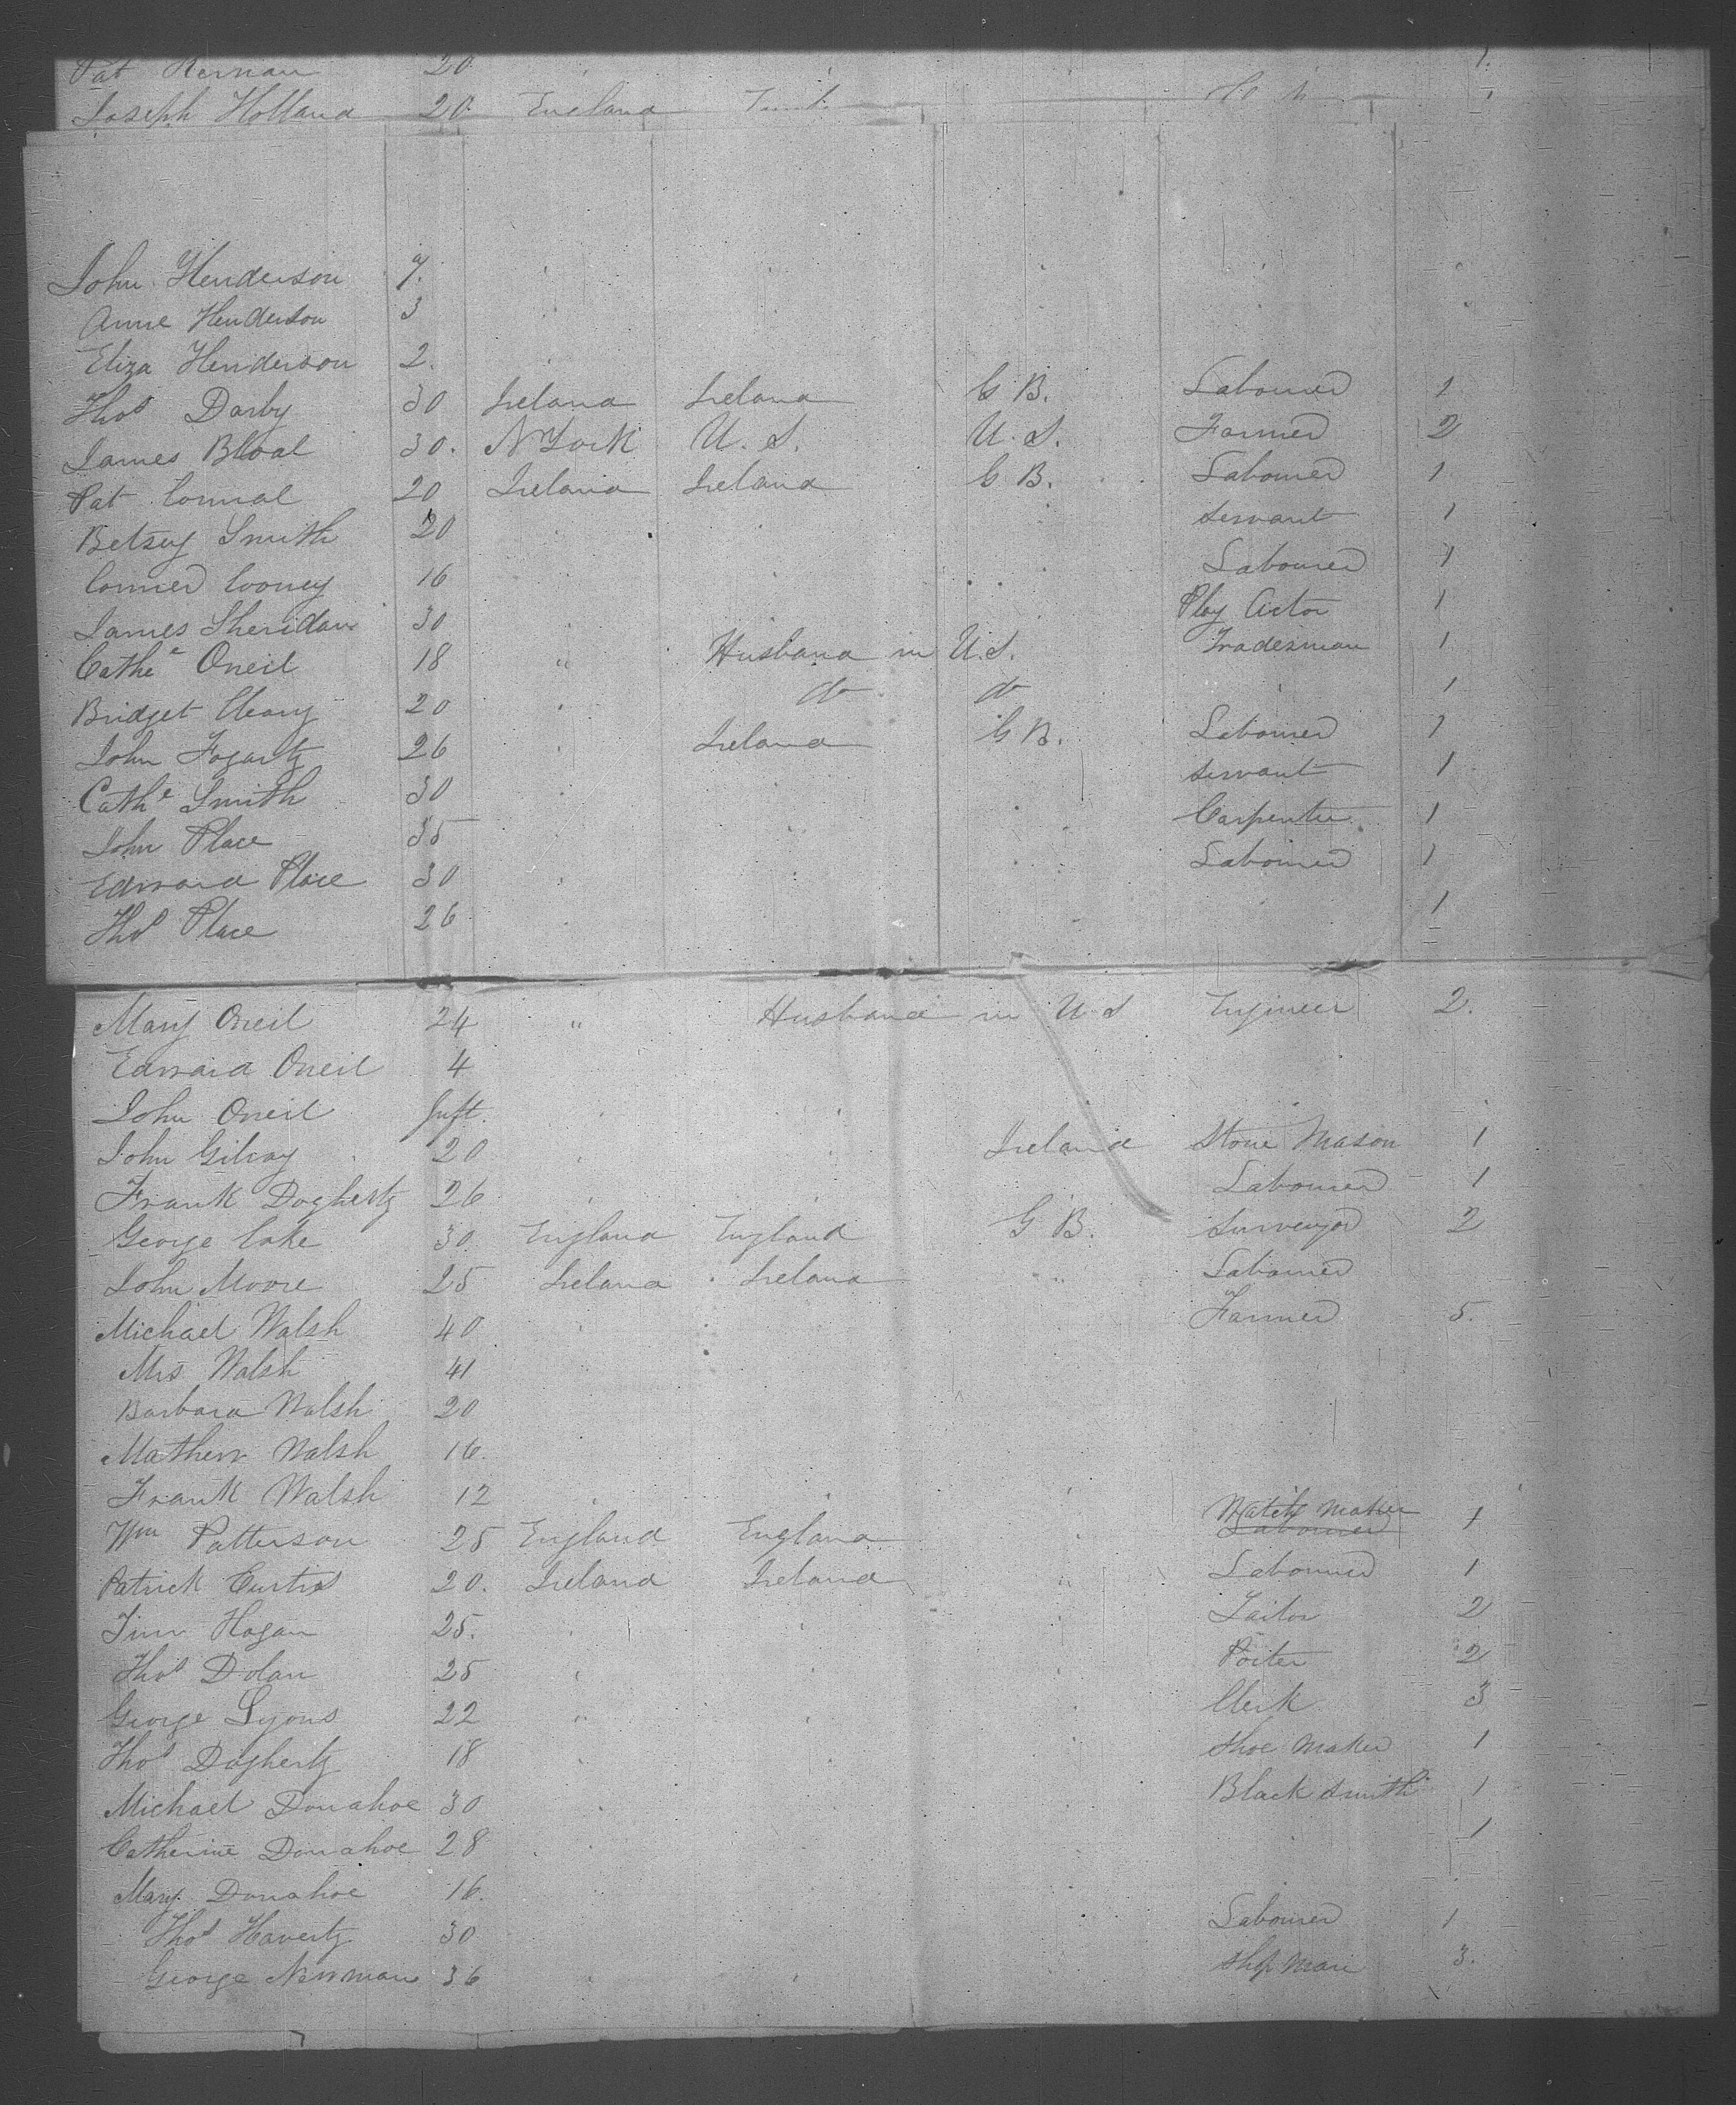 Pat Kernan 20 1.
Joseph Holland 20 England
John Henderson 9.
Anne Henderson 3
Eliza Henderson 2.
Thos Darby 30 Ireland Ireland G B. Labourer 1
James Bloal 30. N York U. S. U. S. Farmer 2
Pat Connal 20 Ireland Ireland G B. Labourer 1
Betsey Smith 20 " Servant 1
Conner Cooney 16 " Labourer 1
James Sheridan 30 " Play Actor 1
Cathe Oneil 18 " Husband in U.S. Tradesman 1
Bridget Cleary 20 " do do " 1
John Fogarty 26 " Ireland G B. Labourer 1
Cathe Smith 30 " " " Servant 1
John Place 35 " " Carpenter 1
Edward Place 30 " " Labourer 1
Thos Place 26 1
Mary Oneil 24 " Husband in U S Engineer 2.
Edward Oneil 4
John Oneil Inft. " "
John Gilray 20 " " Ireland Stone Mason 1
Frank Dogherty 26 " " Labourer 1
George Cake 30 England England G B. Surveyor 2
John Moore 25 Ireland Ireland " " Labourer
Michael Walsh 40 " " Farmer 5.
Mrs Walsh 41
Barbara Walsh 20
Mathew Walsh 16.
Frank Walsh 12 " " "
Watch Maker
Wm Patterson 25 England England " Labourer 1
Patrick Curtis 20. Ireland Ireland " Labourer 1
Tim Hogan 25. " " " Tailor 2
Thos Dolan 25 " " " Porter 2
George Lyons 22 " " " Clerk 3
Thos Dogherty 18 " Shoe Maker 1
Michael Donahoe 30 " " Black Smith 1
Catherine Donahoe 28 " " 1
Mary Donahoe 16.
Thos Haverty 30 Labourer 1
George Newman 36 " " Shop Man 3.